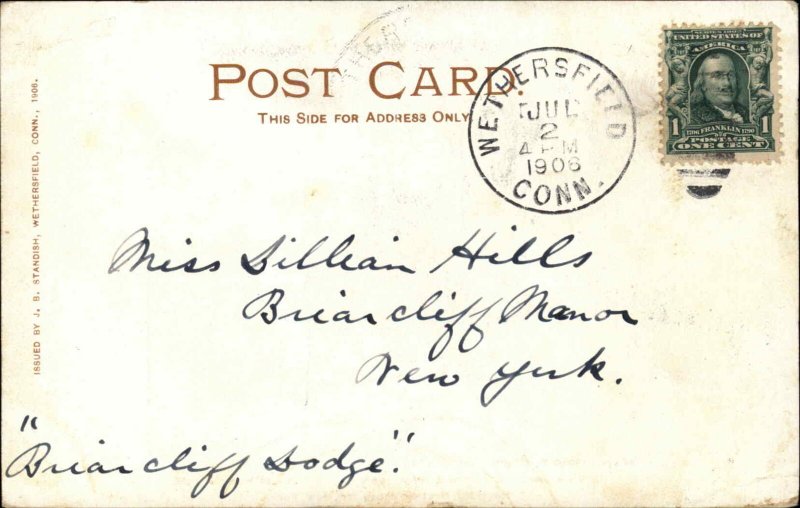 POST CARD.
THIS SIDE FOR ADDRESS ONLY
WETHERSFIELD
JUL
2
4 PM
1906
CONN.
SERIES 1902
UNITED STATES OF
AMERICA
1 1
1706 FRANKLIN 1790
POSTAGE
ONE CENT
ISSUED BY J. B. STANDISH, WETHERSFIELD, CONN., 1906.
Miss Lillian Hills
Briarcliff Manor
New York.
"Briarcliff Lodge".